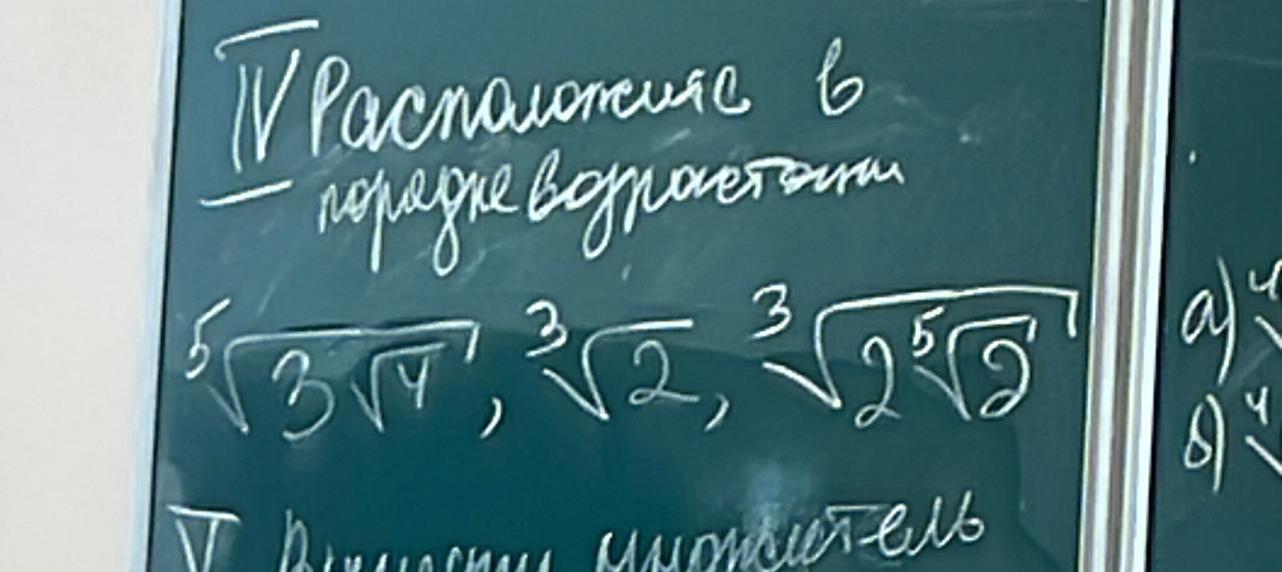 IV Расположите в
порядке возрастании
⁵√(3√4), ³√2, ³√(2⁵√2)
а) ⁴√
б) ⁴√
V Вынести множитель